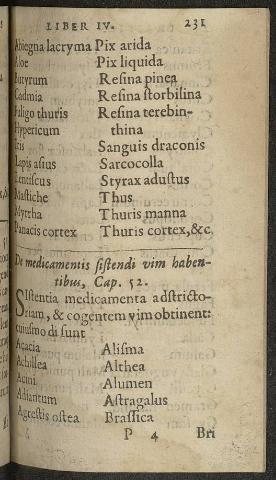 LIBER IV. 231
Abiegna lacryma Pix arida
Aloe Pix liquida
Butyrum Resina pinea
Cadmia Resina storbilina
Fuligo thuris Resina terebin-
Hypericum thina
Iris Sanguis draconis
Lapis asius Sarcocolla
Lentiscus Styrax adustus
Mastiche Thus
Myrrha Thuris manna
Panacis cortex Thuris cortex, &c
De medicamentis sistendi vim haben-
tibus, Cap. 52.
SIstentia medicamenta adstricto-
riam, & cogentem vim obtinent:
cuiusmodi sunt
Acacia Alisma
Achillea Althea
Acini Alumen
Adiantum Astragalus
Agrestis ostea Brassica
P 4 Bri